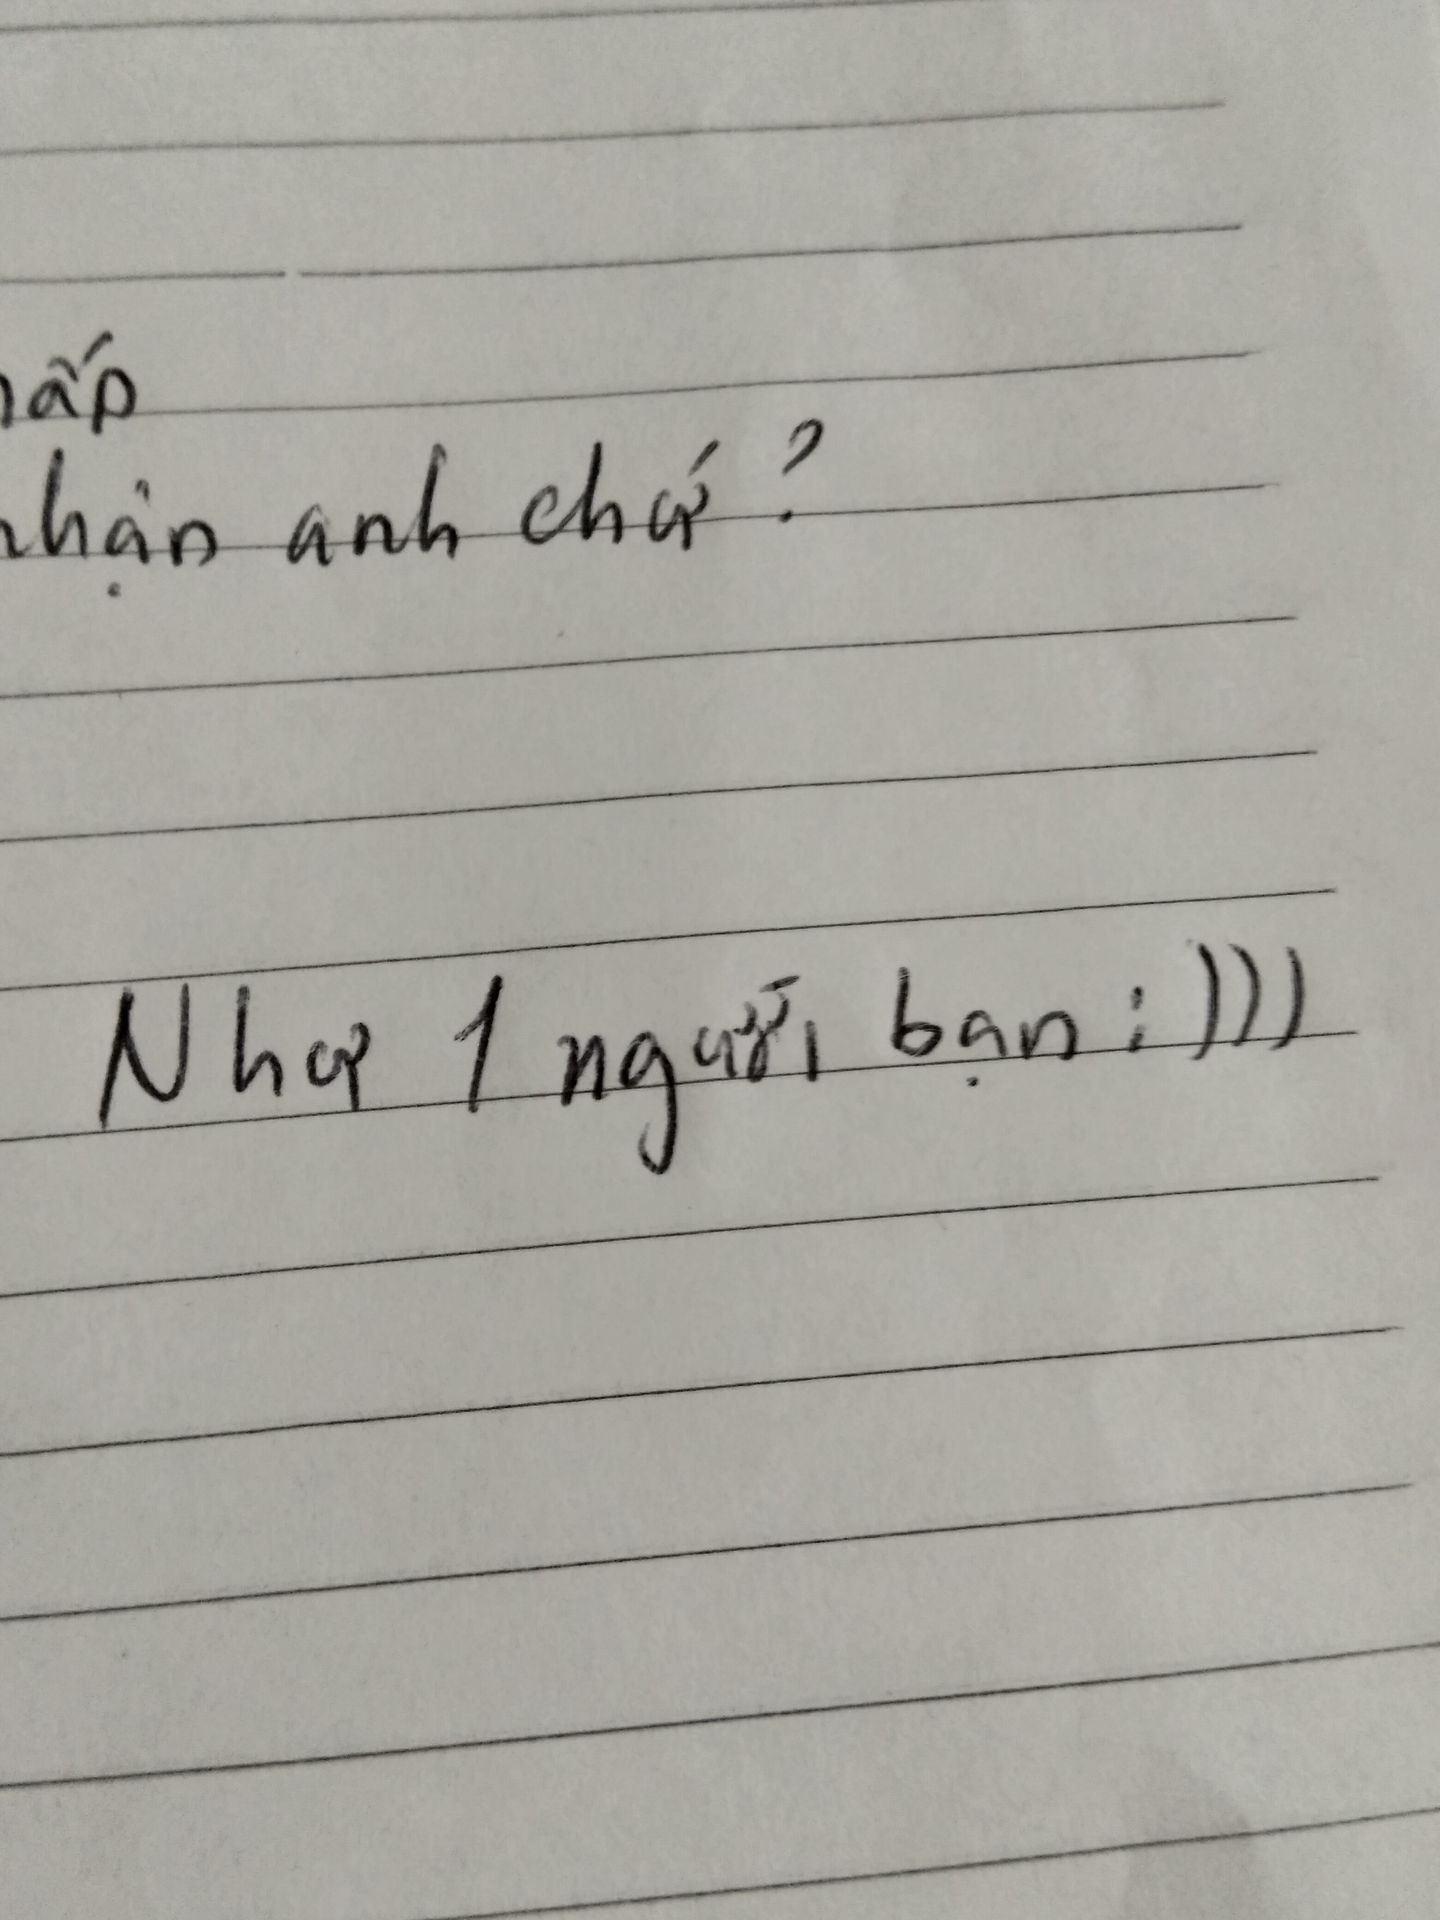 hấp
nhận anh chứ?
Như 1 người bạn :)))